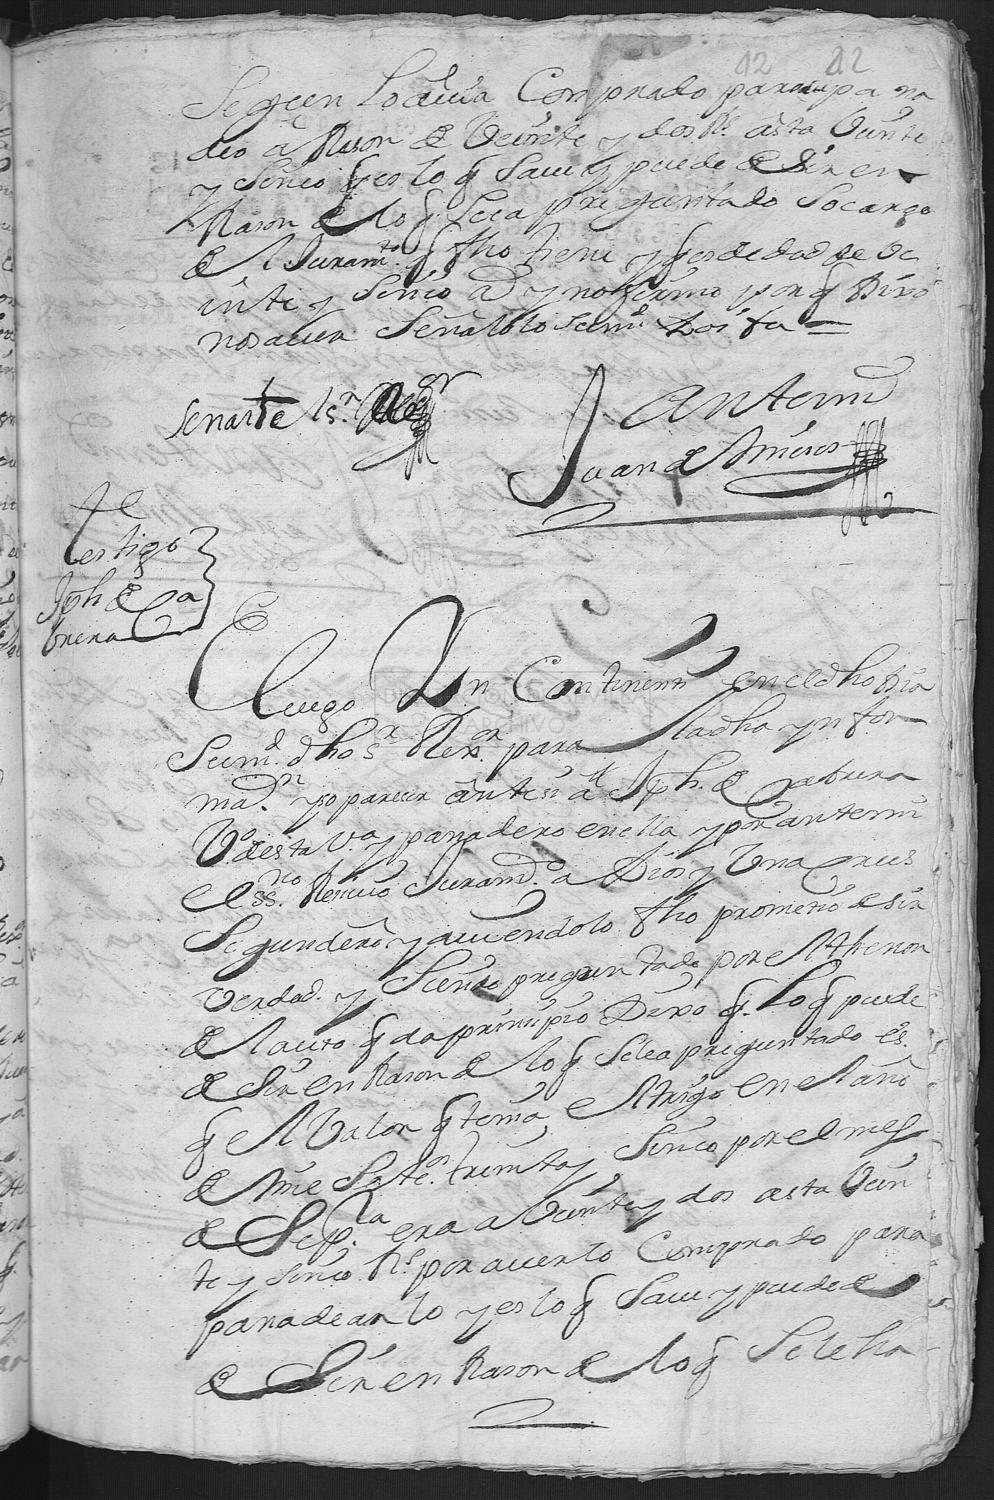 12 12
Segun lo avia Comprado para su pana
deo a Rason de Veinte y dos Rs. asta Veinte
y Sinco q es lo q Save y puede desir en
Rason de lo q Sele a preguntado So cargo
de el Juramto. q fho tiene y q es de edad de Ve
inte y Sinco as y no firmo por q Dixo
no saver Señalolo su md. Doi fe =
Ante mi
Juan de
testigo
Jph de Ca
brera
E luego Yn Continenti en el dho Dia
Su md. dho Sr. Rexor. para la dha ynfor
mazn. yso pareser ante si a Jph. de Cabrera
Vo. desta Va. y panadero en ella y por ante mi
el ssno. Resivio Juramto. a Dios y Una Crus
Segun dero. y aviendolo fho prometio desir
Verdad. y Siendo preguntado por el thenor
de el auto q da prinsipio Dixo q. lo q puede
de Sir en Rason de lo q Sele a preguntado es.
q el Valor q tenia el trigo en el año
de mil Sete. treinta y Sinco por el mes
de Sepe. era a Veinte y dos asta Vein
te y sinco Rs. por averlo Comprado para
panadearlo y es lo q Save y puede
de Sir en Rason de lo q Sele ha